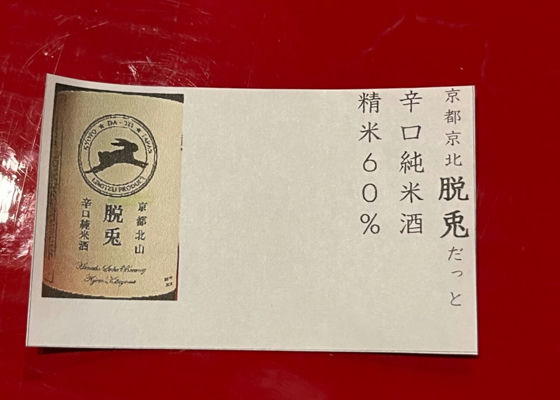 京都京北脱兎だっと
辛口純米酒
精米60%
KYOTO ★ DA-TTO ★ JAPAN
LIMITED PRODUCT
京都北山
脱兎
辛口純米酒